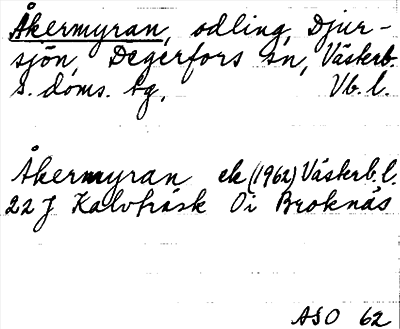 Åkermyran, odling, Djur-
sjön, Degerfors sn, Västerb.
s. doms. tg, Vb. l.
Åkermyran ek (1962) Västerb. l.
22 J Kalvträsk Öi Broknäs
ASO 62